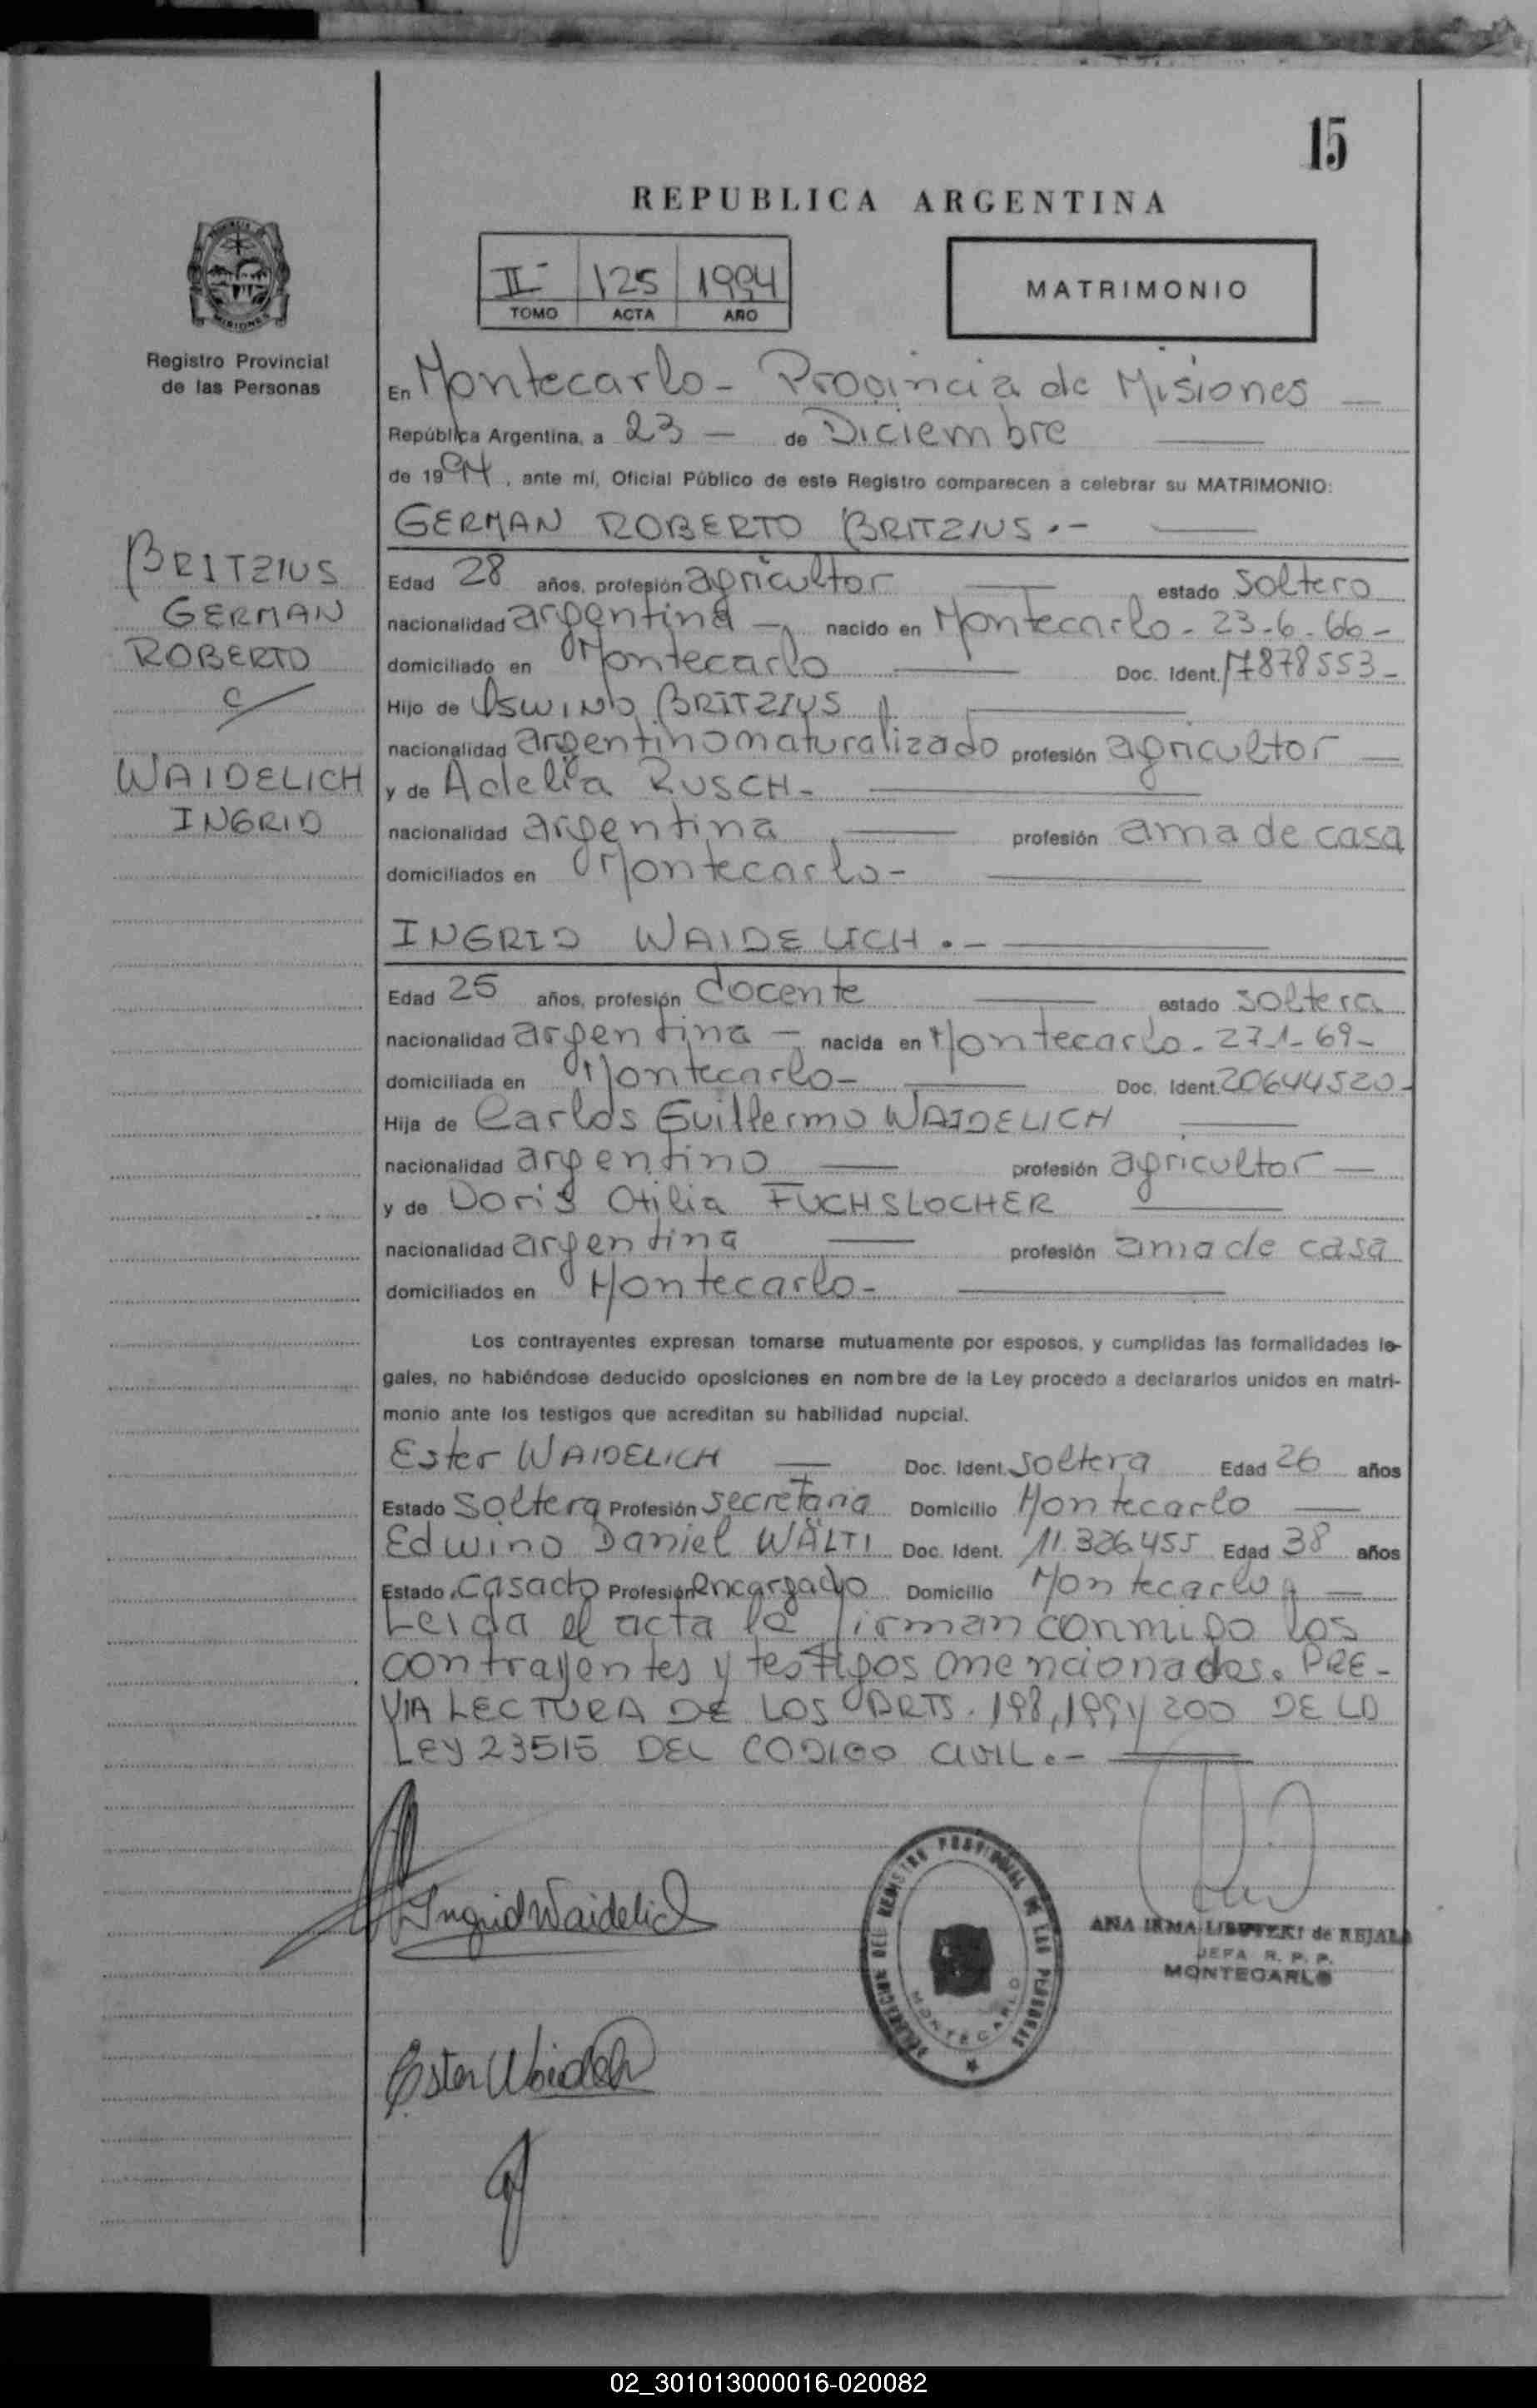 15
REPUBLICA ARGENTINA
II- 125 1994
TOMO ACTA AÑO
MATRIMONIO
Registro Provincial
de las Personas
En Montecarlo - Provincia de Misiones —
República Argentina, a 23 — de Diciembre —
de 1994, ante mí, Oficial Público de este Registro comparecen a celebrar su MATRIMONIO:
GERMAN ROBERTO BRITZIUS .- —
BRITZIUS
GERMAN
ROBERTO
c/
WAIDELICH
INGRID
Edad 28 años, profesión agricultor — estado soltero
nacionalidad argentina — nacido en Montecarlo - 23-6-66 -
domiciliado en Montecarlo — Doc. Ident. 17878553 -
Hijo de Oswino BRITZIUS —
nacionalidad argentino naturalizado profesión agricultor —
y de Adelia RUSCH - —
nacionalidad argentina — profesión ama de casa
domiciliados en Montecarlo - —
INGRID WAIDELICH .- —
Edad 25 años, profesión docente — estado soltera
nacionalidad argentina — nacida en Montecarlo - 27-1-69 -
domiciliada en Montecarlo - — Doc. Ident. 20644520 -
Hija de Carlos Guillermo WAIDELICH —
nacionalidad argentino — profesión agricultor —
y de Doris Otilia FUCHSLOCHER —
nacionalidad argentina — profesión ama de casa
domiciliados en Montecarlo - —
Los contrayentes expresan tomarse mutuamente por esposos, y cumplidas las formalidades le-
gales, no habiéndose deducido oposiciones en nombre de la Ley procedo a declararlos unidos en matri-
monio ante los testigos que acreditan su habilidad nupcial.
Ester WAIDELICH — Doc. Ident. soltera Edad 26 años
Estado soltera Profesión secretaria Domicilio Montecarlo —
Edwino Daniel WÄLTI Doc. Ident. 11.326.455 Edad 38 años
Estado casado Profesión encargado Domicilio Montecarlo —
Leida el acta la firman conmigo los
contrayentes y testigos mencionados. PRE-
VIA LECTURA DE LOS ARTS. 198, 199 y 200 DE LA
LEY 23515 DEL CODIGO CIVIL .- —
Ingrid Waidelich
REGISTRO PROVINCIAL DE LAS PERSONAS
MONTECARLO
ANA IRMA de REJALA
JEFA R. P. P.
MONTECARLO
Ester Waidelich
02_301013000016-020082